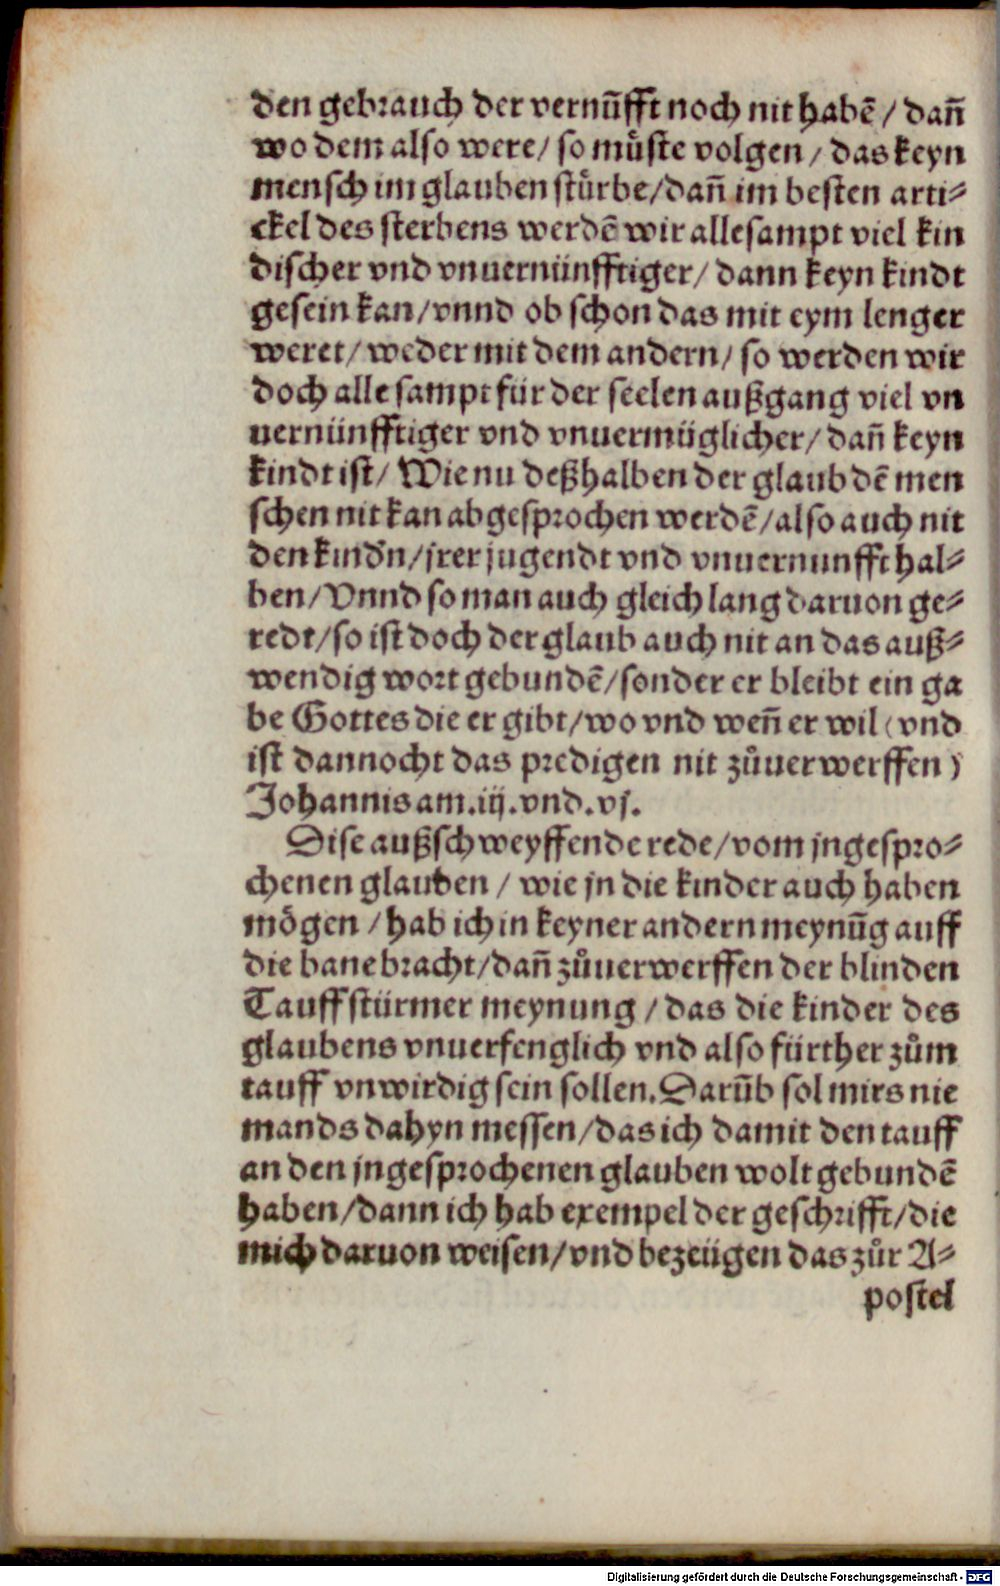 den gebrauch der vernũfft noch nit habẽ / dañ
wo dem also were / so můste volgen / das keyn
mensch im glauben stürbe / dañ im besten arti⸗
ckel des sterbens werdẽ wir allesampt viel kin
discher vnd vnuernünfftiger / dann keyn kindt
gesein kan / vnnd ob schon das mit eym lenger
weret / weder mit dem andern / so werden wir
doch alle sampt für der seelen außgang viel vn
uernünfftiger vnd vnuermüglicher / dañ keyn
kindt ist / Wie nu deßhalben der glaub dẽ men
schen nit kan abgesprochen werdẽ / also auch nit
den kindn̄ / jrer jugendt vnd vnuernunfft hal⸗
ben / Vnnd so man auch gleich lang daruon ge⸗
redt / so ist doch der glaub auch nit an das auß⸗
wendig wort gebundẽ / sonder er bleibt ein ga
be Gottes die er gibt / wo vnd weñ er wil (vnd
ist dannocht das predigen nit zůuerwerffen)
Johannis am .iij. vnd .vj.
Dise außschweyffende rede / vom jngespro⸗
chenen glauben / wie jn die kinder auch haben
mögen / hab ich in keyner andern meynũg auff
die bane bracht / dañ zůuerwerffen der blinden
Tauffstürmer meynung / das die kinder des
glaubens vnuerfenglich vnd also fürther zům
tauff vnwirdig sein sollen. Darũb sol mirs nie
mands dahyn messen / das ich damit den tauff
an den jngesprochenen glauben wolt gebundẽ
haben / dann ich hab exempel der geschrifft / die
mich daruon weisen / vnd bezeügen das zůr A⸗
postel
Digitalisierung gefördert durch die Deutsche Forschungsgemeinschaft - DFG